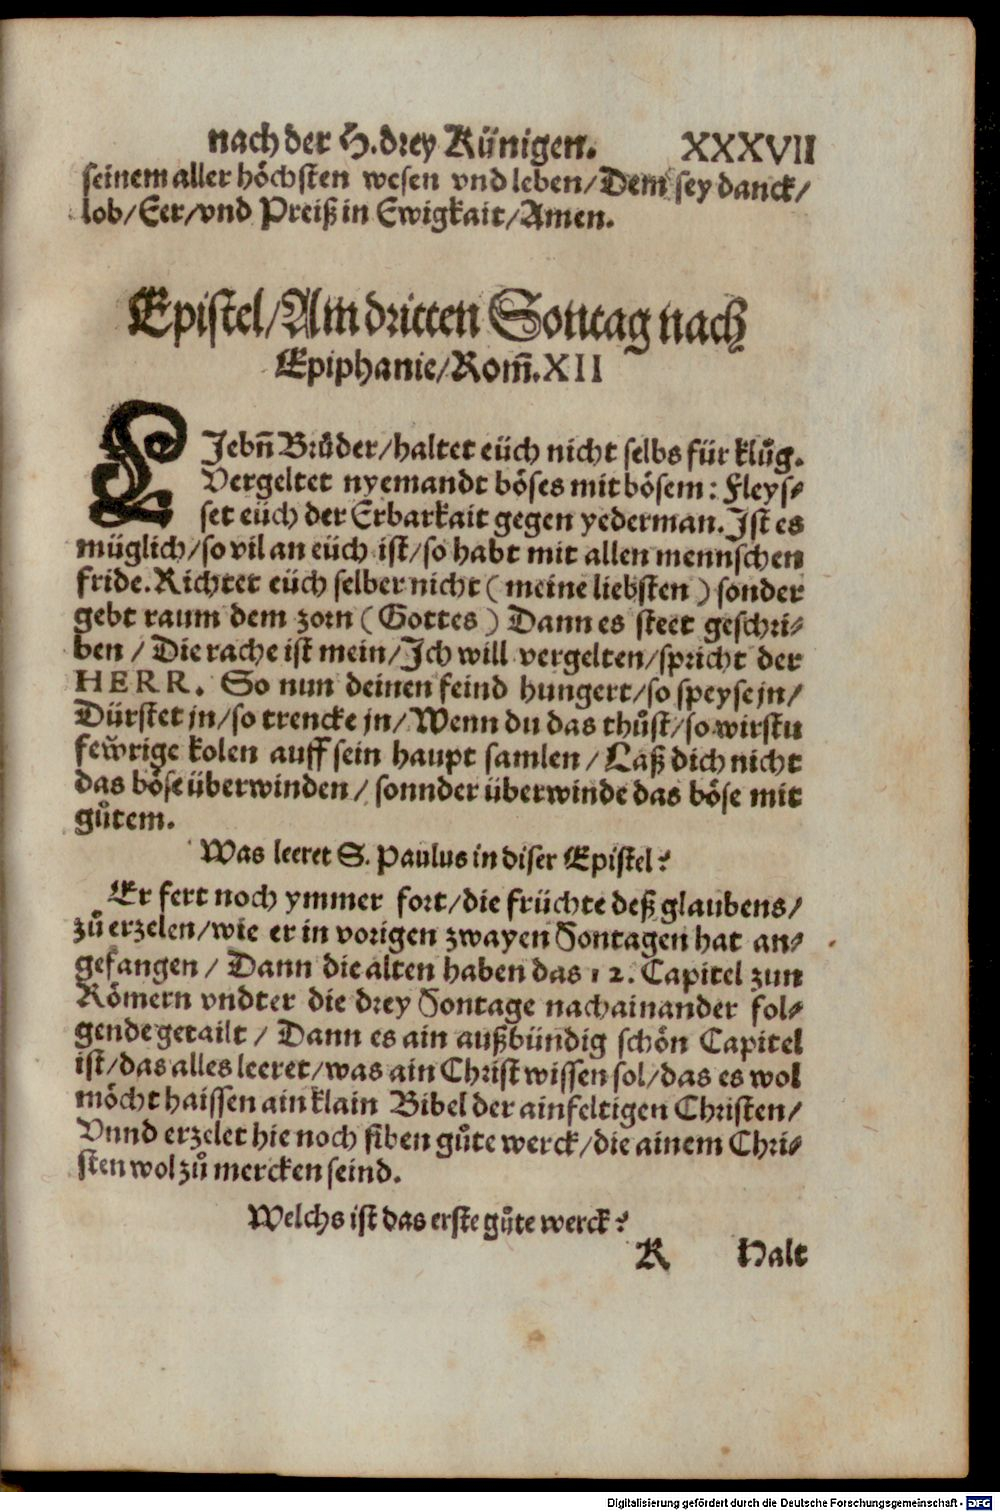 nach der H. drey Künigen. XXXVII
seinem aller höchsten wesen vnd leben/ Dem sey danck/
lob/ Eer/ vnd Preiß in Ewigkait/ Amen.
Epistel/ Am dritten Sontag nach
Epiphanie/ Rom̃. XII
LJebñ Brůder/ haltet eüch nicht selbs für klůg.
Vergeltet nyemandt böses mit bösem: Fleys⸗
set eüch der Erbarkait gegen yederman. Ist es
müglich/ so vil an eüch ist/ so habt mit allen mennschen
fride. Richtet eüch selber nicht ( meine liebsten ) sonder
gebt raum dem zorn ( Gottes ) Dann es steet geschri⸗
ben / Die rache ist mein/ Ich will vergelten/ spricht der
HERR. So nun deinen feind hungert/ so speyse jn/
Dürstet jn/ so trencke jn/ Wenn du das thůst/ so wirstu
fewrige kolen auff sein haupt samlen / Laß dich nicht
das böse überwinden / sonnder überwinde das böse mit
gůtem.
Was leeret S. Paulus in diser Epistel?
Er fert noch ymmer fort/ die früchte deß glaubens/
zů erzelen/ wie er in vorigen zwayen Sontagen hat an⸗
gefangen / Dann die alten haben das 12. Capitel zun
Römern vndter die drey Sontage nachainander fol⸗
gende getailt / Dann es ain außbündig schön Capitel
ist/ das alles leeret/ was ain Christ wissen sol/ das es wol
möcht haissen ain klain Bibel der ainfeltigen Christen/
Vnnd erzelet hie noch siben gůte werck/ die ainem Chri⸗
sten wol zů mercken seind.
Welchs ist das erste gůte werck?
K Halt
Digitalisierung gefördert durch die Deutsche Forschungsgemeinschaft - DFG